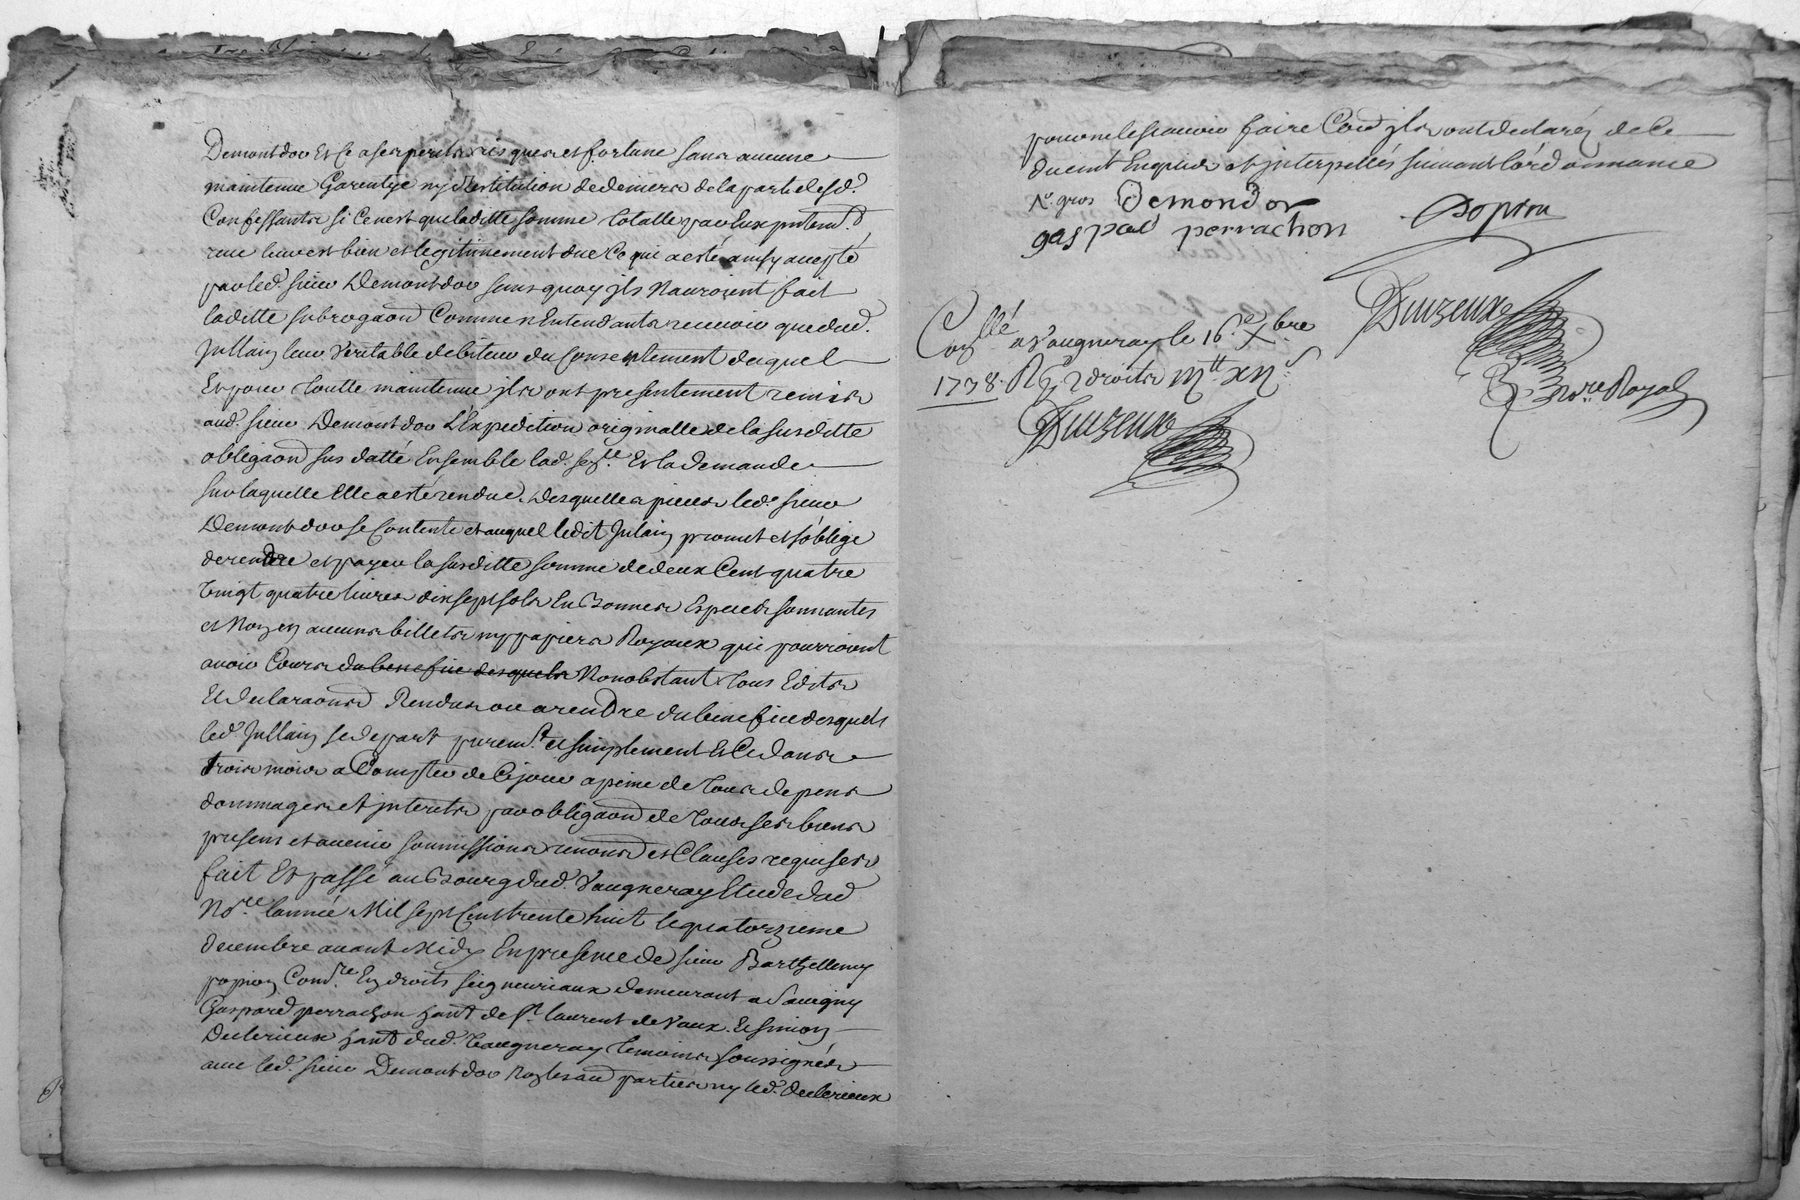 Demontdor Et Ce a ses perils risques et fortune sans aucune
maintenue Garentye ny Restitution de deniers de la part desd.
Confessants si Ce nest que laditte somme totalle par Eux pretend.
leur est bien et legitimement due Ce qui a esté ainsy accepté
par led. sieur Demontdor sans quoy jls Nauroient fait
laditte subrogaon Comme Nentendants recevoir que dud.
Jullain leur Veritable debiteur du Consentement duquel
Et pour toutte maintenue jls ont presentement remis
aud. sieur Demontdor L'Expedition originalle de la susditte
obligaon sus datté Ensemble lad. sec.e Et la demande
sur laquelle Elle a esté rendue. Desquelles pieces led. sieur
Demontdor se Contente et auquel ledit Julain promet et s'oblige
de rendre et payer la susditte somme de deux Cent quatre
Vingt quatre livres dix sept sols En Bonnes Especes sonnantes
et Non en aucuns billets ny papiers Royaux qui pourroient
avoir Cours du benefice desquels Nonobstant tous Edits
Et declaraons Rendus ou a rendre du benefice desquels
led. Jullain se depart purem.t et simplement Et Ce dans
trois mois a Compter de Ce jour a peine de tous depens
dommages et jnterets par obligaon de tous ses biens
presens et avenir soumissions renons et Clauses requises
fait Et passé au Bourg dud. Vaugneray Etude dud.
No.re lannée Mil sept Cent trente huit le quatorzieme
decembre avant Midy En presence de sieur Barthellemy
popion Com.re En droits seigneuriaux demeurant a Savigny
Gaspard perrachon hant de st. laurent de Vaux. Et simon
Duclerieux hant dud. Vaugneray temoins soussignés
avec led. sieur Demontdor Non les au. parties ny led. duclerieux
pour ne le scavoir faire Co.e jls ont declaréz de Ce
duemt Enquis et jnterpellés suivant lórdonnance
N. gros Demondor
popion
gaspad perrachon
Duizeux
No.re Royal
Con.llé a Vaugneray le 16.e Xbre
1738. R 2 droits
Duizeux